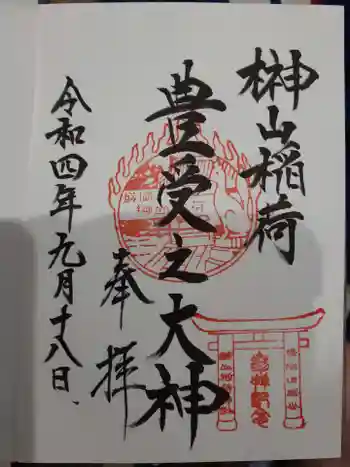 榊山稲荷
豊受之大神
奉拝
令和四年元月十八日